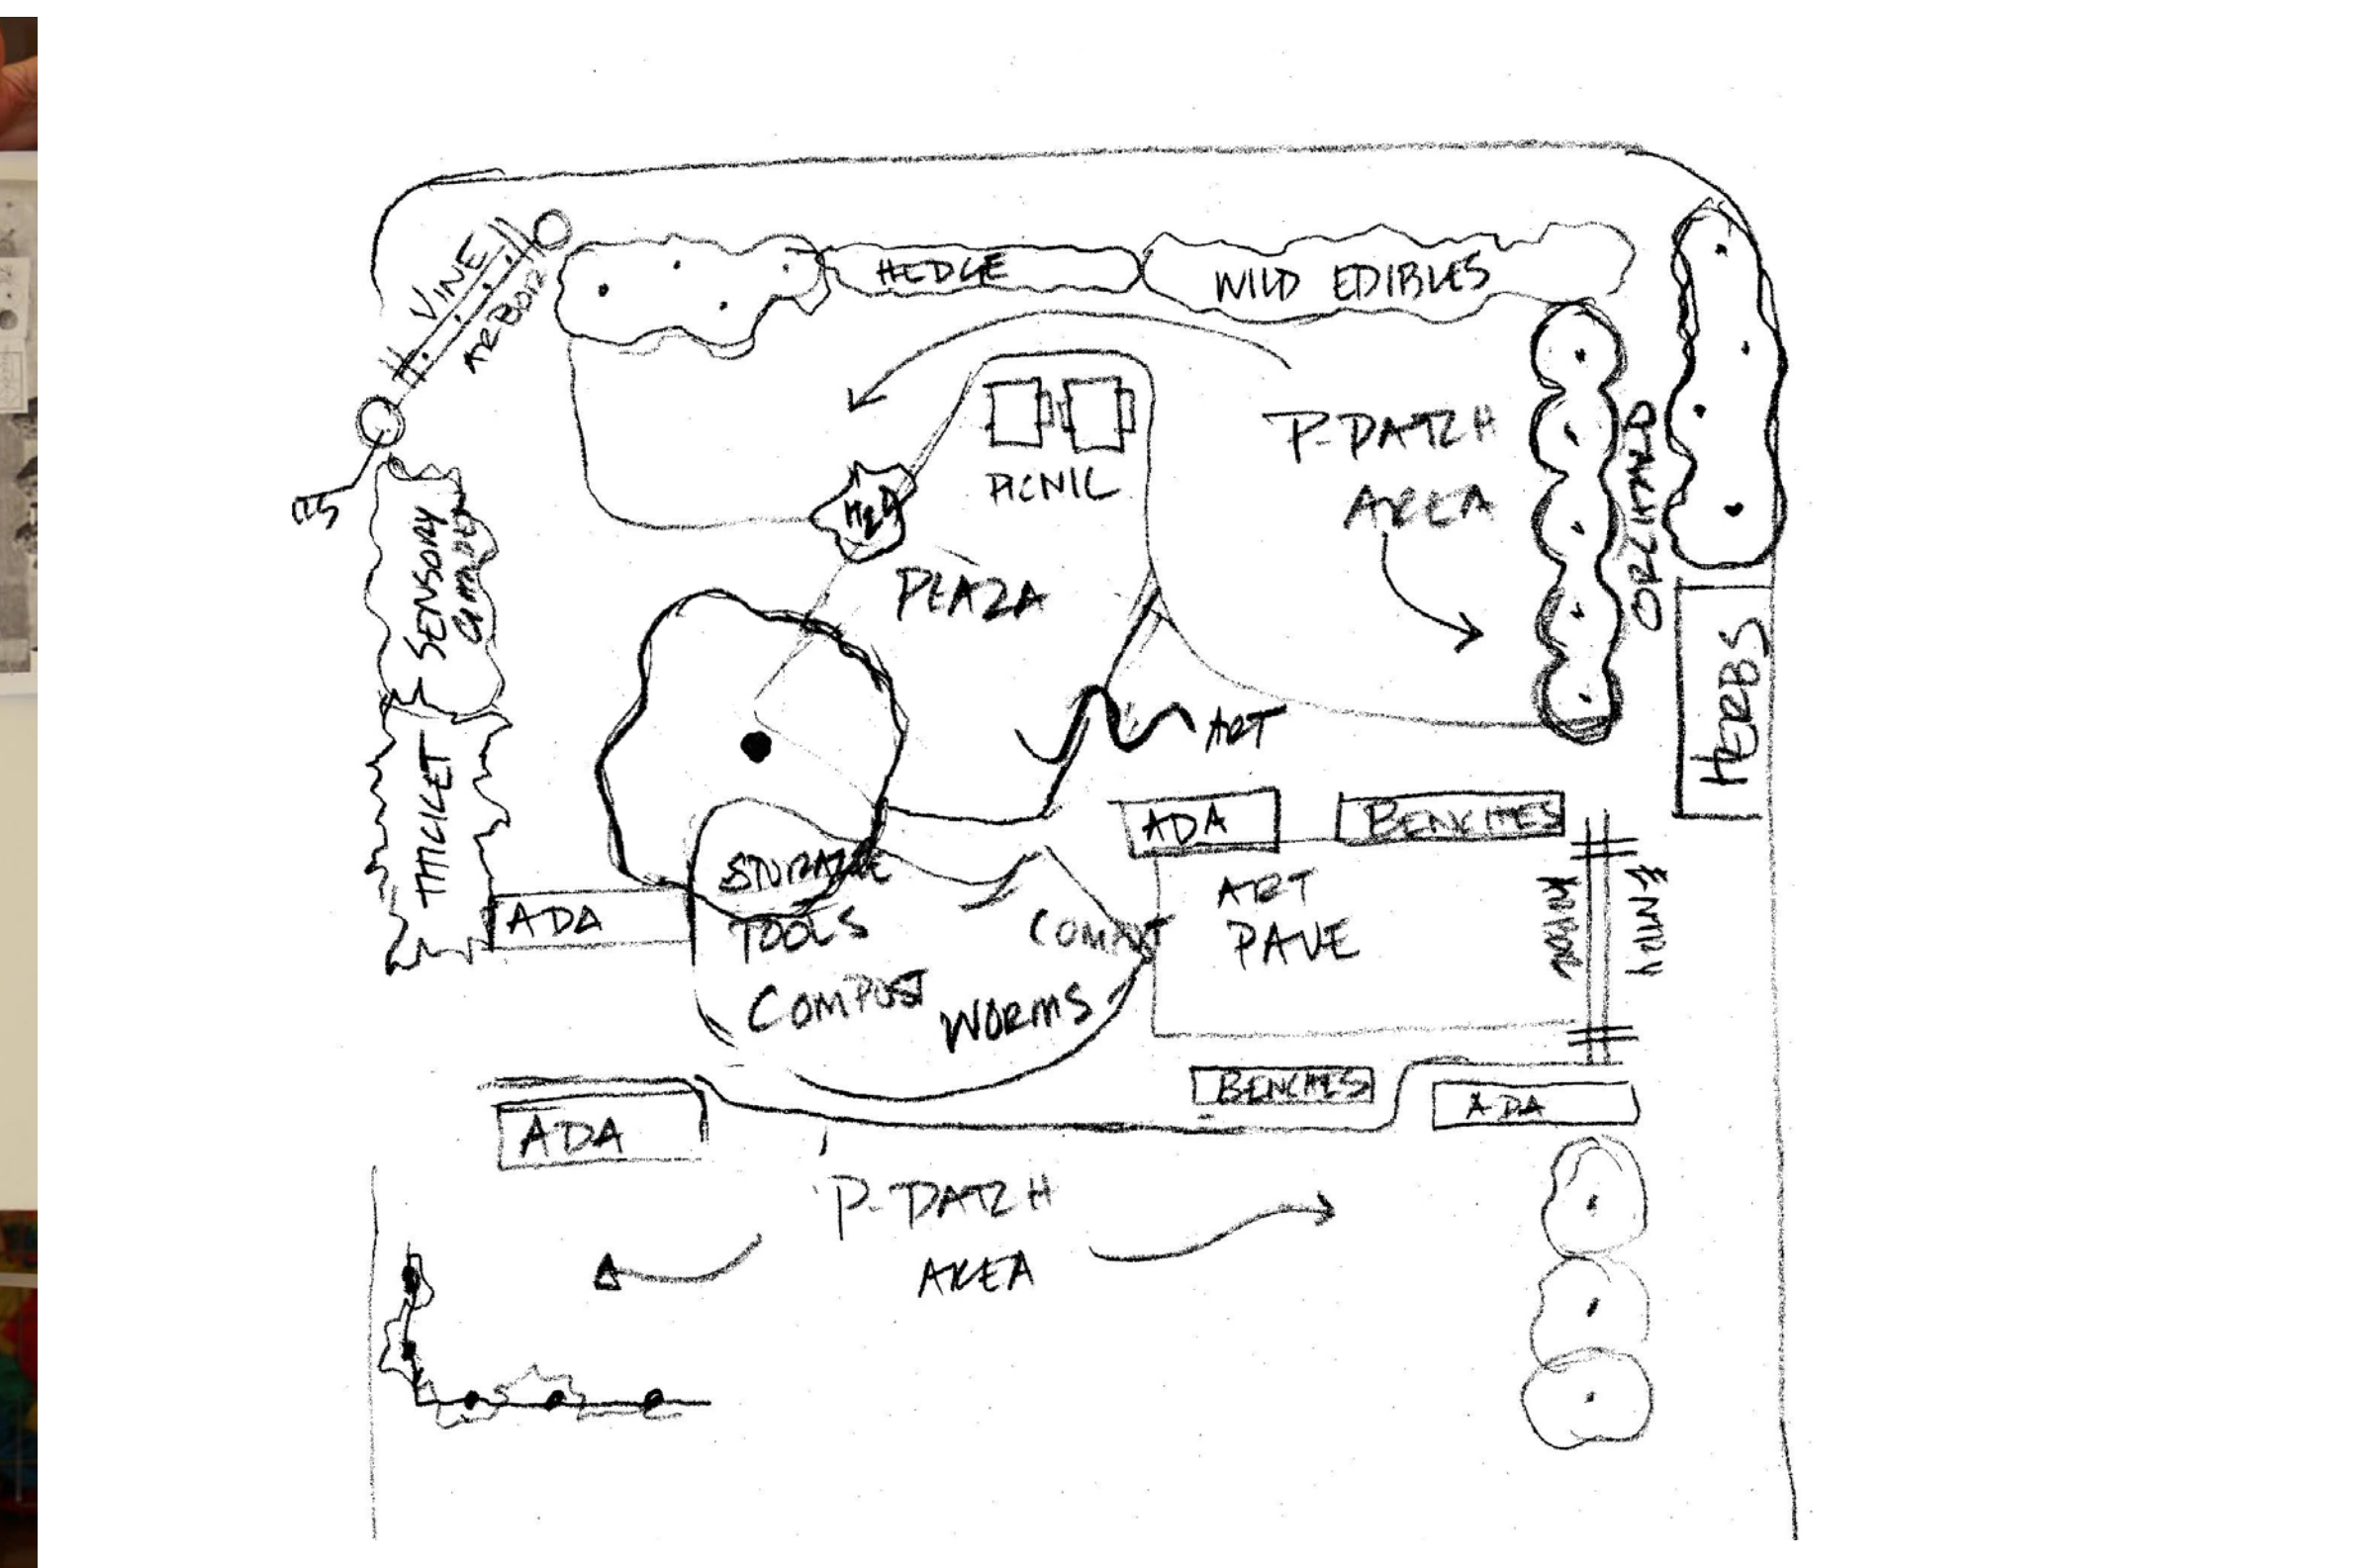 VINE
ARBOR
HEDGE
WILD EDIBLES
P-PATCH
AREA
ORCHARD
PICNIC
H2O
PLAZA
SENSORY
THICKET
HERBS
ART
ADA
BENCHES
ADA
STORAGE
TOOLS
COMPOST
WORMS
ART
PAVE
ENTRY
BENCHES
ADA
ADA
P-PATCH
AREA